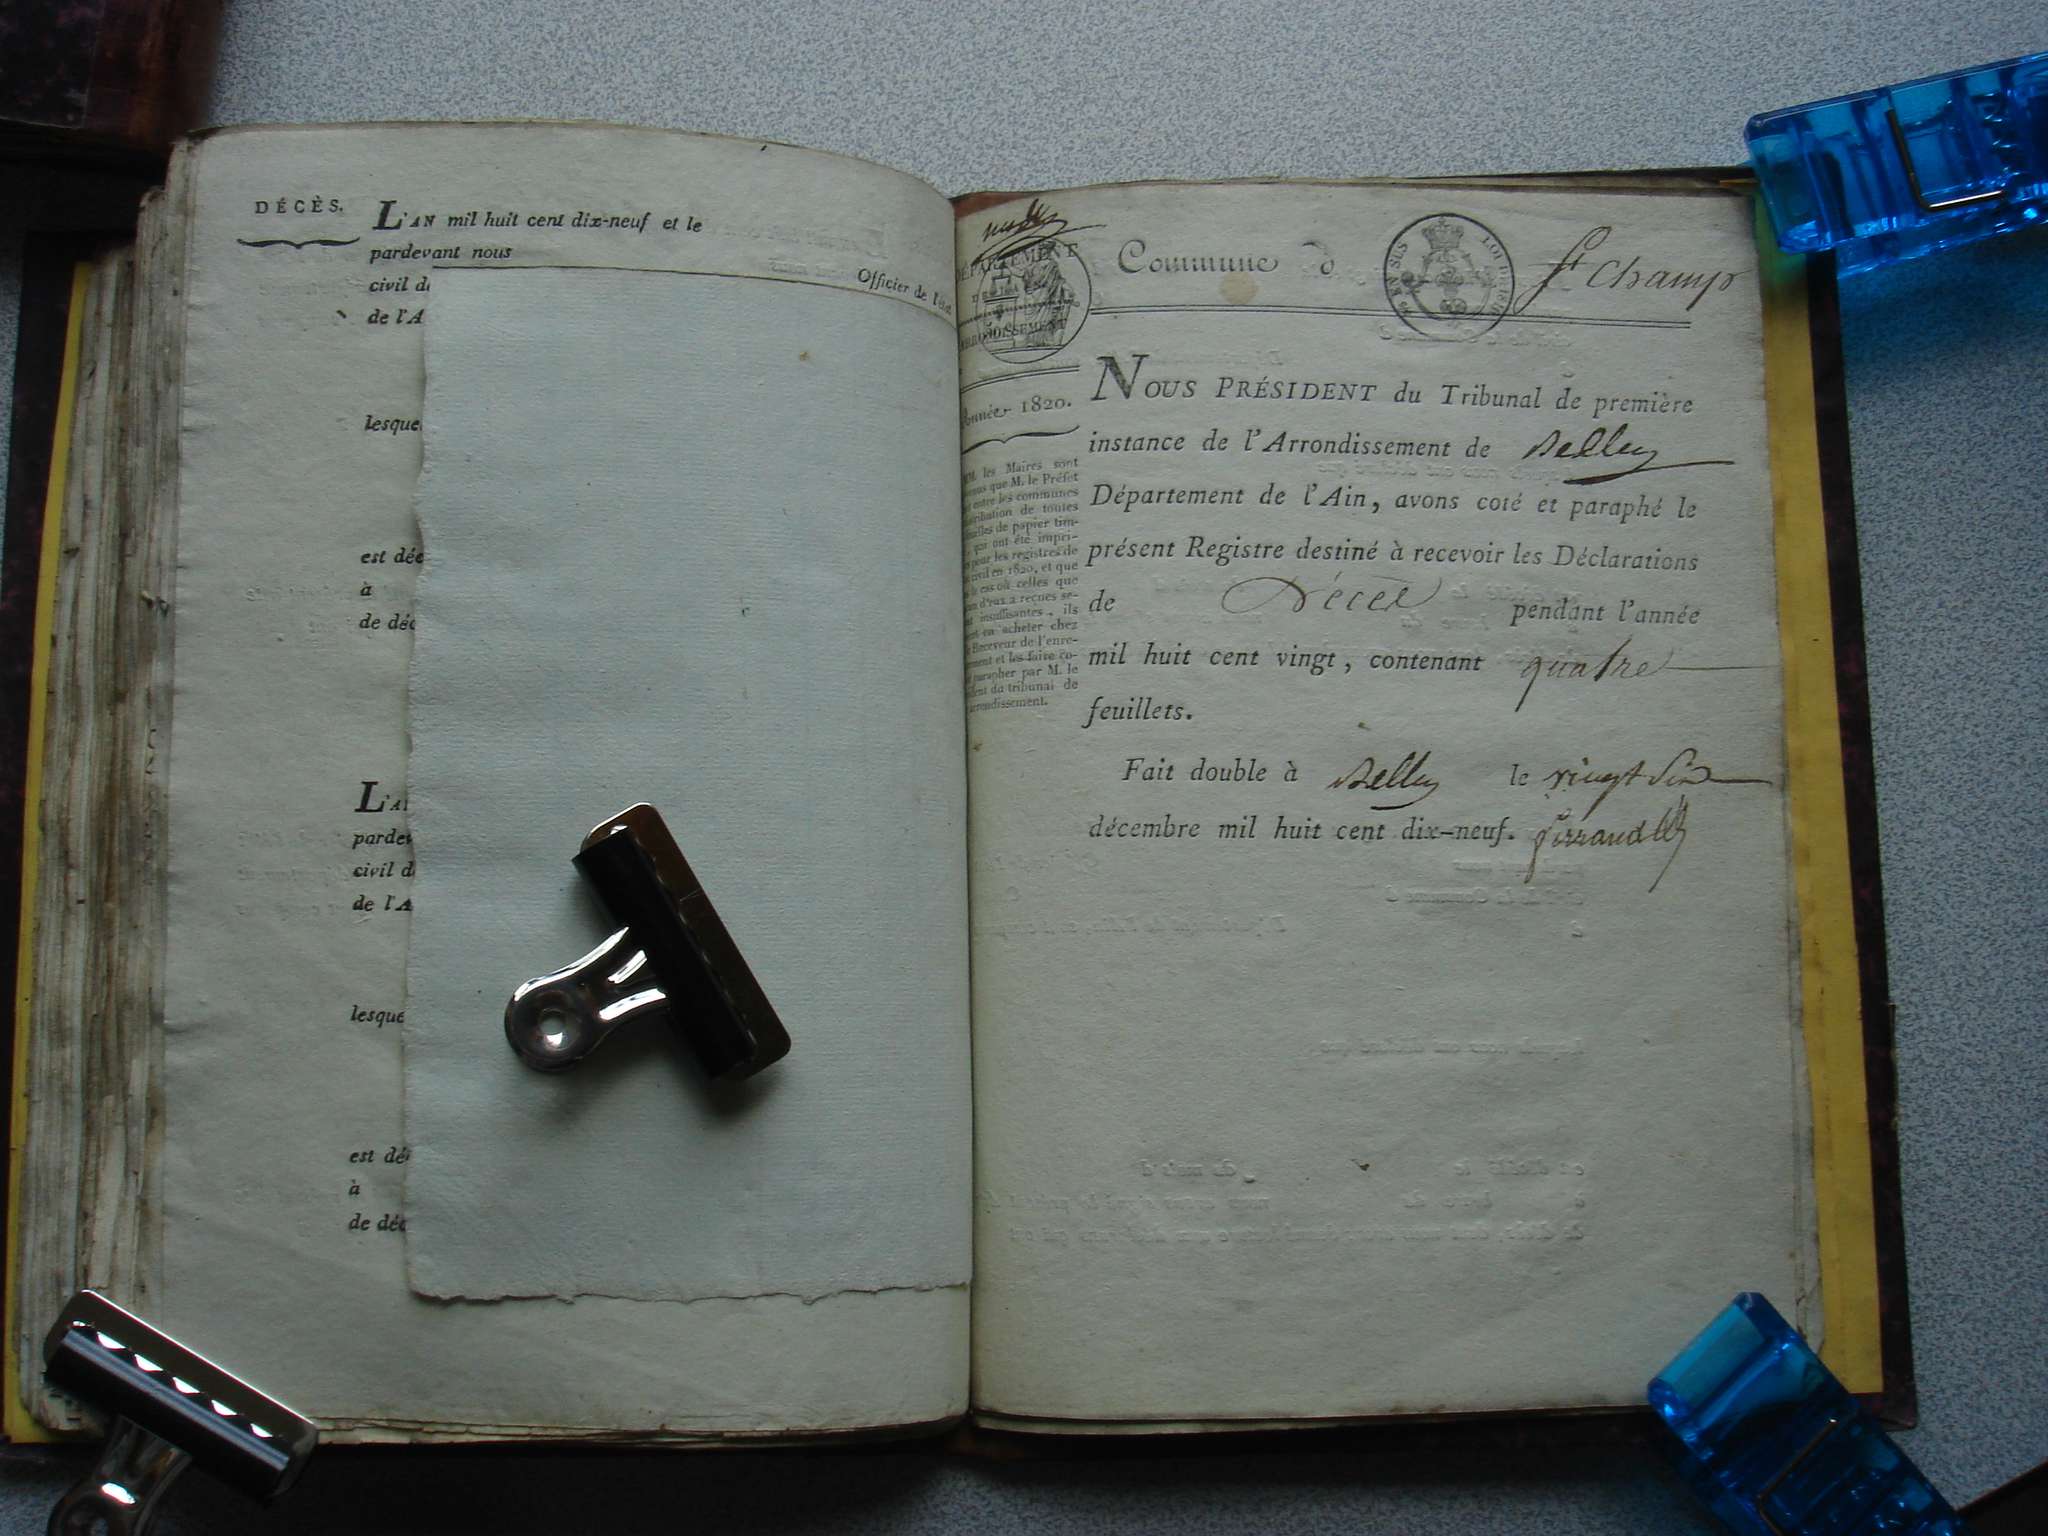 DÉCÈS.
L'AN mil huit cent dix-neuf et le
pardevant nous
Officier de l'état
civil d
de l'A
lesque
est déc
à
de déc
L'A
pardev
civil d
de l'A
lesque
est dé
à
de déc
DÉPARTEMENT
Année 1820.
MM. les Maires sont
que M. le Préfet
entre les communes
de toutes
de papier tim-
qui ont été impri-
pour les registres de
civil en 1820, et que
le cas où celles que
d'eux a reçues se-
insuffisantes, ils
en acheter chez
Receveur de l'enre-
et les faire co-
parapher par M. le
du tribunal de
arrondissement.
Commune d St Champ
EN SUS LOI DE 1816
NOUS PRÉSIDENT du Tribunal de première
instance de l'Arrondissement de Belley
Département de l'Ain, avons coté et paraphé le
présent Registre destiné à recevoir les Déclarations
de Décès pendant l'année
mil huit cent vingt, contenant quatre
feuillets.
Fait double à Belley le vingt six
décembre mil huit cent dix-neuf.